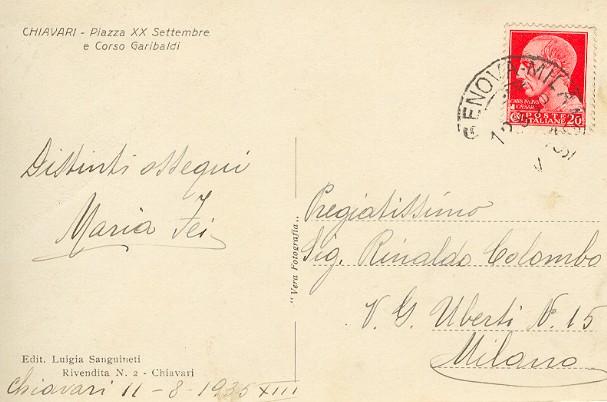 CHIAVARI - Piazza XX Settembre
e Corso Garibaldi
GENOVA-MILANO
POSTE
ITALIANE
20
Distinti ossequi
Maria Fei
"Vera Fotografia"
Pregiatissimo
Sig. Rinaldo Colombo
V. G. Uberti N. 15
Milano
Edit. Luigia Sanguineti
Rivendita N. 2 - Chiavari
Chiavari 11-8-1935 XIII